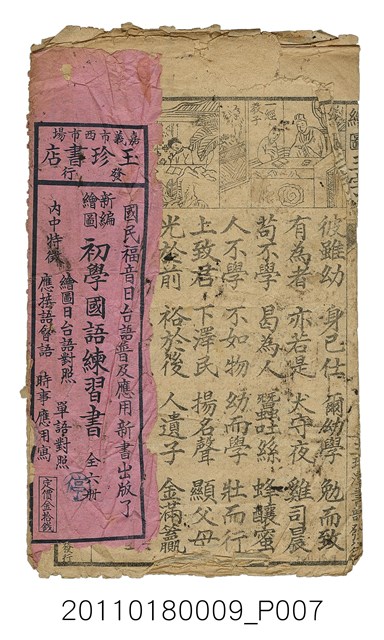 彼雖幼 身已仕 爾幼學 勉而致
有為者 亦若是 犬守夜 雞司晨
苟不學 曷為人 蠶吐絲 蜂釀蜜
人不學 不如物 幼而學 壯而行
上致君 下澤民 揚名聲 顯父母
光於前 裕於後 人遺子 金滿籯
嘉義市西市場
玉珍書店
發行
國民福音日台語普及應用新書出版了
新編
繪圖
初學國語練習書
全六冊
內中特徵
繪圖日台語對照
單語對照
應接語會語
時事應用寫
定價金拾錢
20110180009_P007